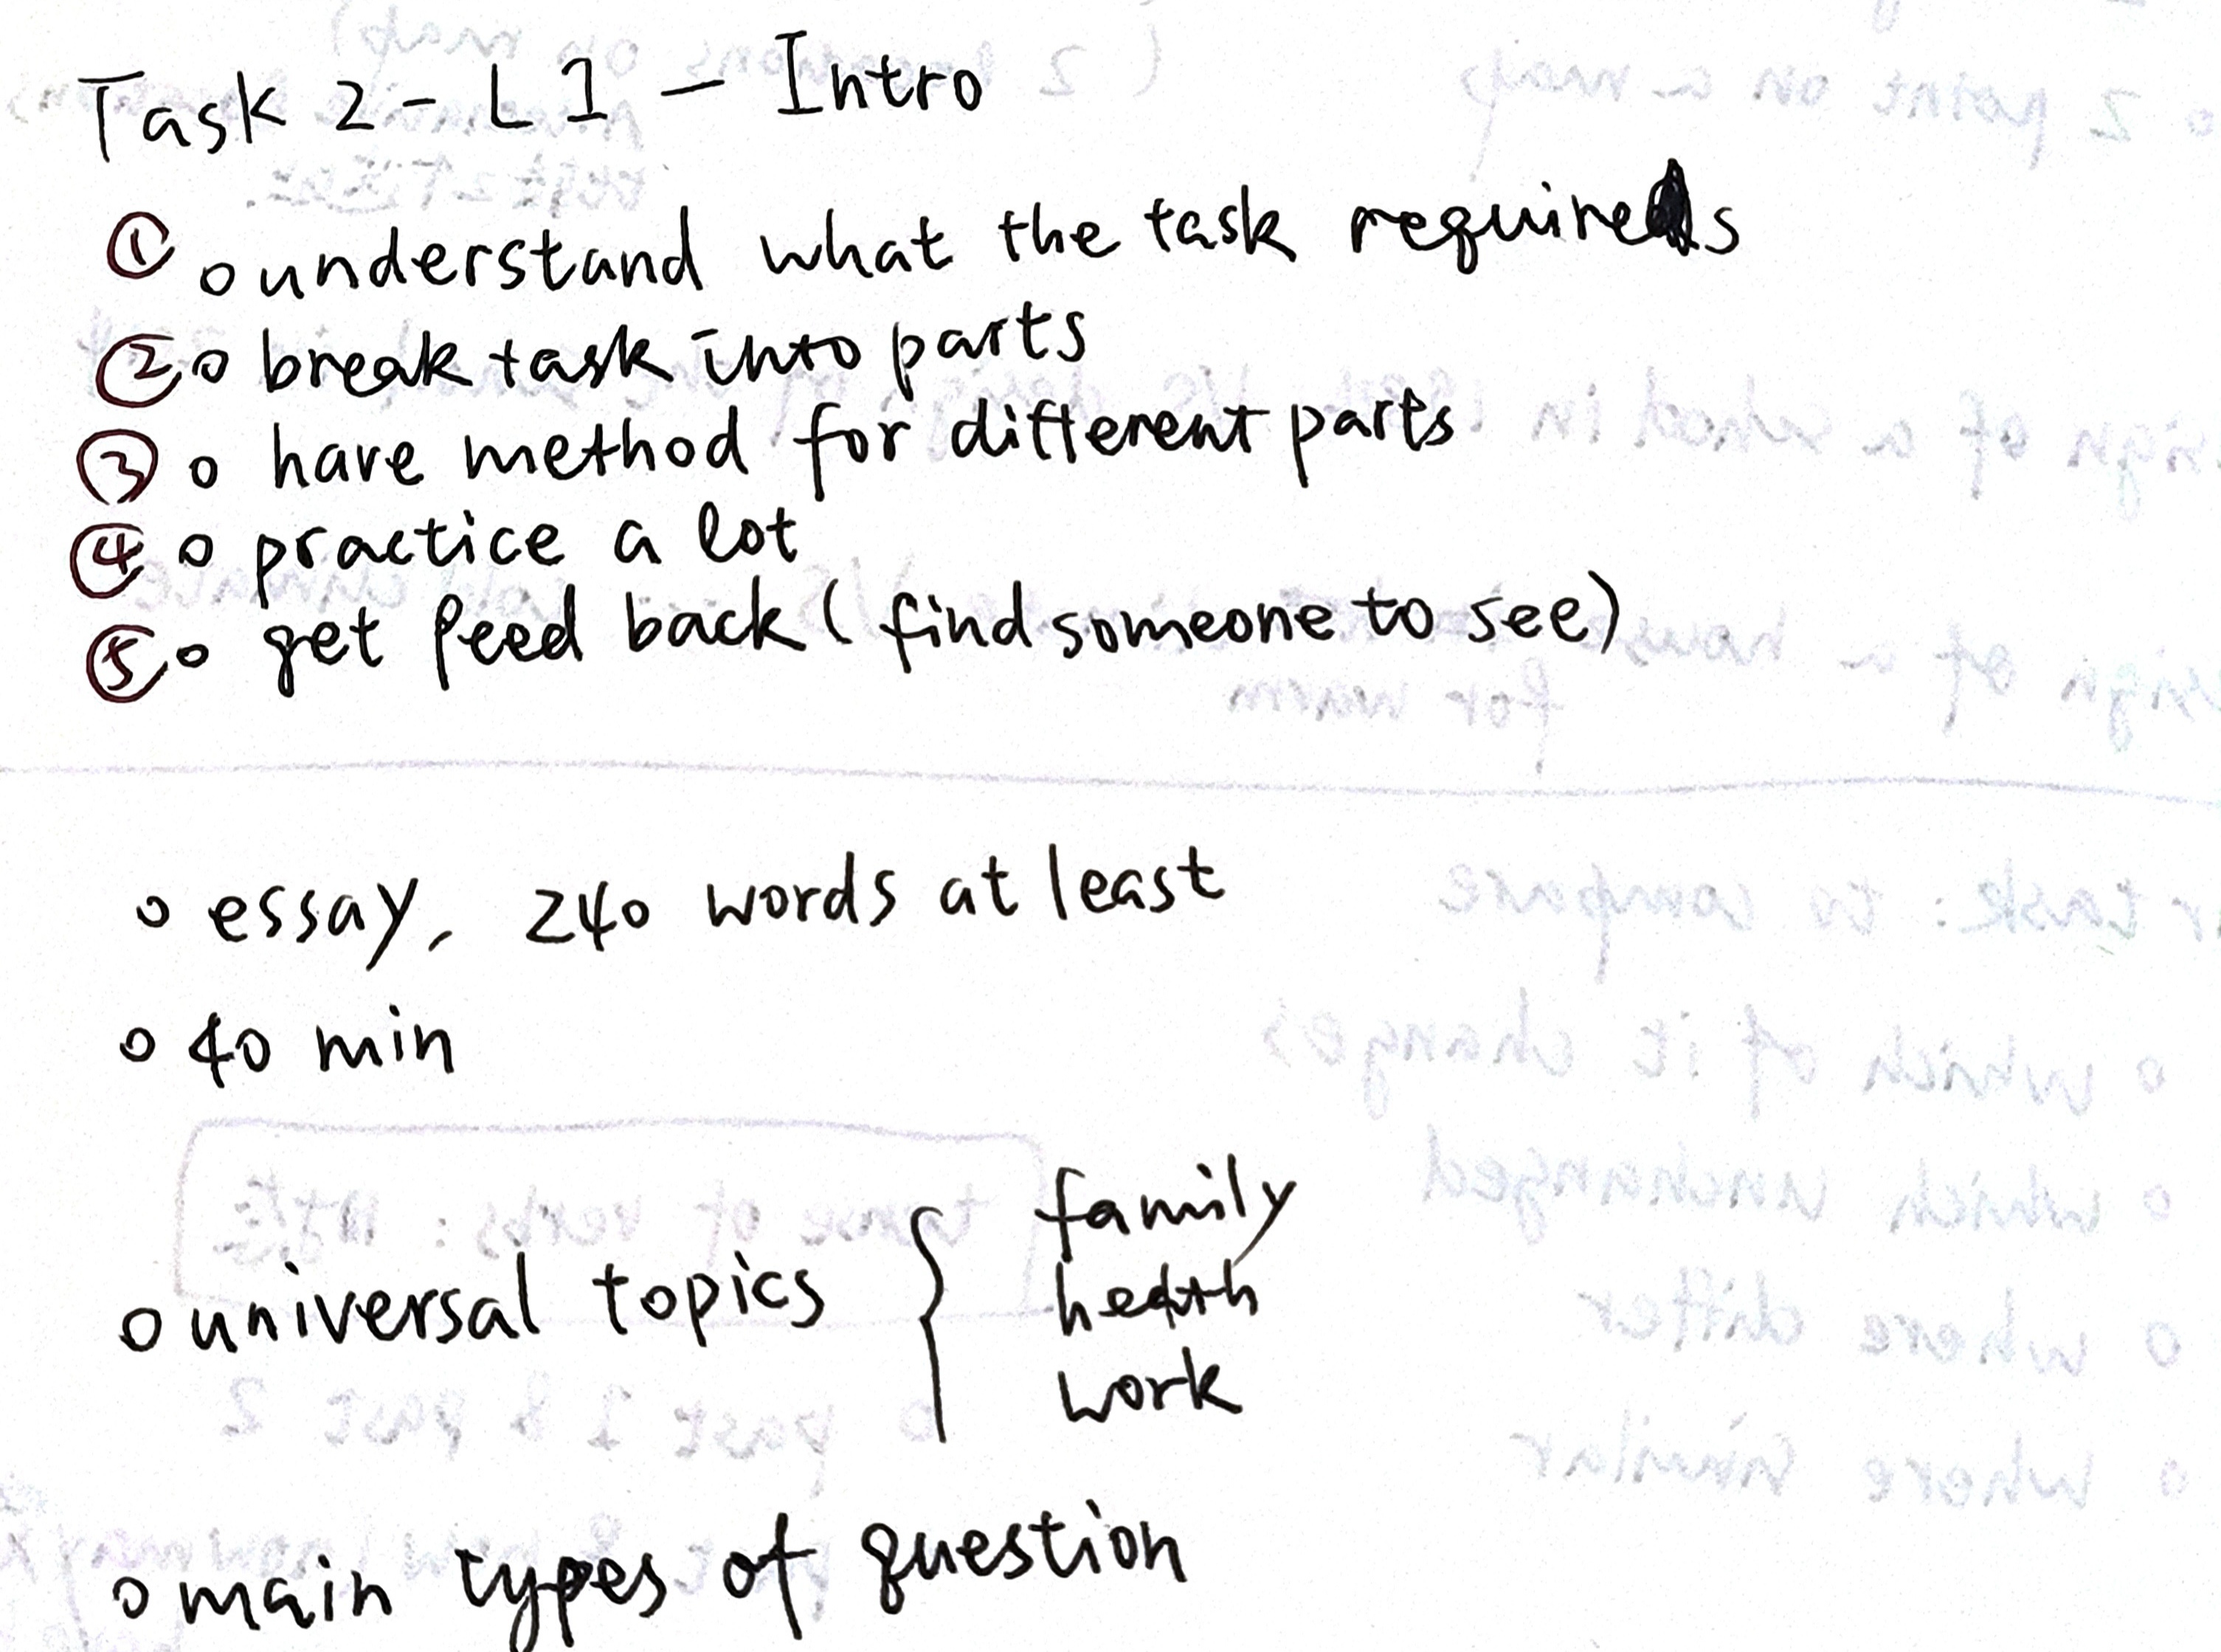 Task 2 - L1 - Intro
① o understand what the task requires
② o break task into parts
③ o have method for different parts
④ o practice a lot
⑤ o get feed back (find someone to see)
o essay, 240 words at least
o 40 min
o universal topics { family
health
work
o main types of question